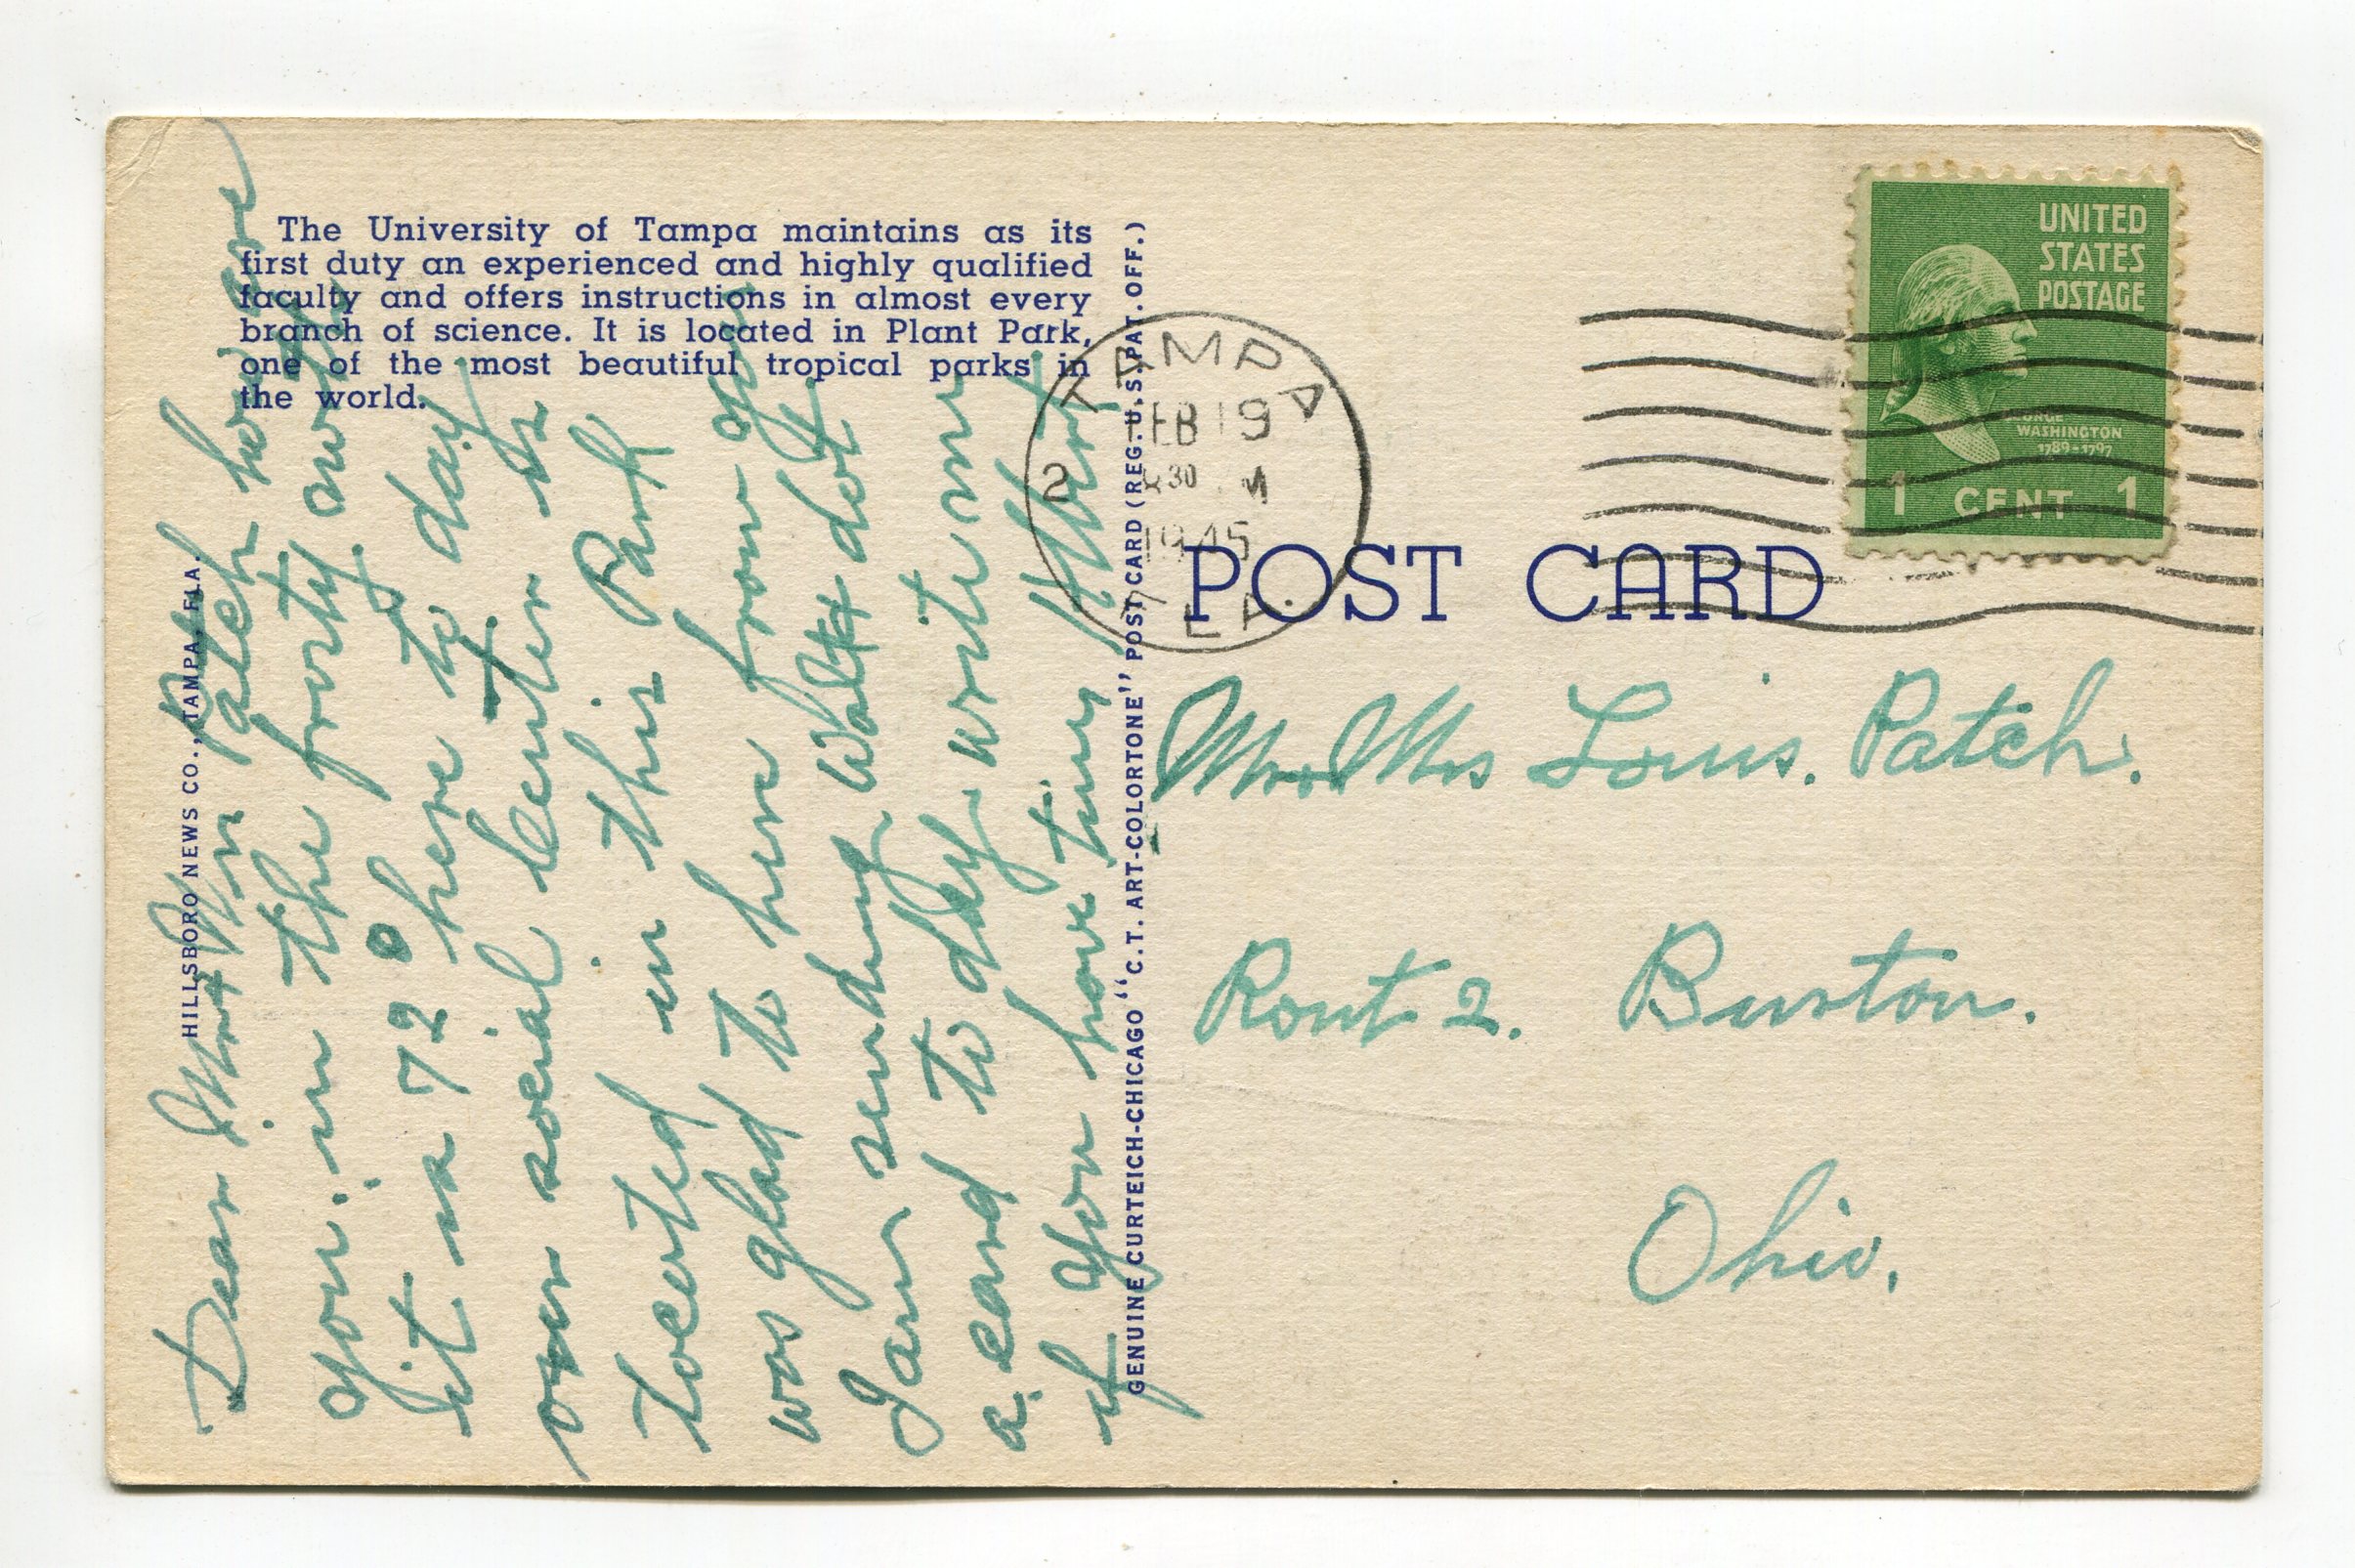 The University of Tampa maintains as its
first duty an experienced and highly qualified
faculty and offers instructions in almost every
branch of science. It is located in Plant Park,
one of the most beautiful tropical parks in
the world.
HILLSBORO NEWS CO., TAMPA, FLA.
Dear Mr & Mrs Patch how are
you in the frosty
it is 72° here to day
our social Center is
Located in this Park
was glad to here from you
I am sending Walt
a card to day write me
if you have time
GENUINE CURTEICH-CHICAGO "C.T. ART-COLORTONE" POST CARD (REG. U.S. PAT. OFF.)
TAMPA
FEB 19
2 30 M
1945
FLA.
UNITED
STATES
POSTAGE
GEORGE
WASHINGTON
1789-1797
1 CENT 1
POST CARD
Mr & Mrs Louis. Patch.
Rout 2. Burton.
Ohio.